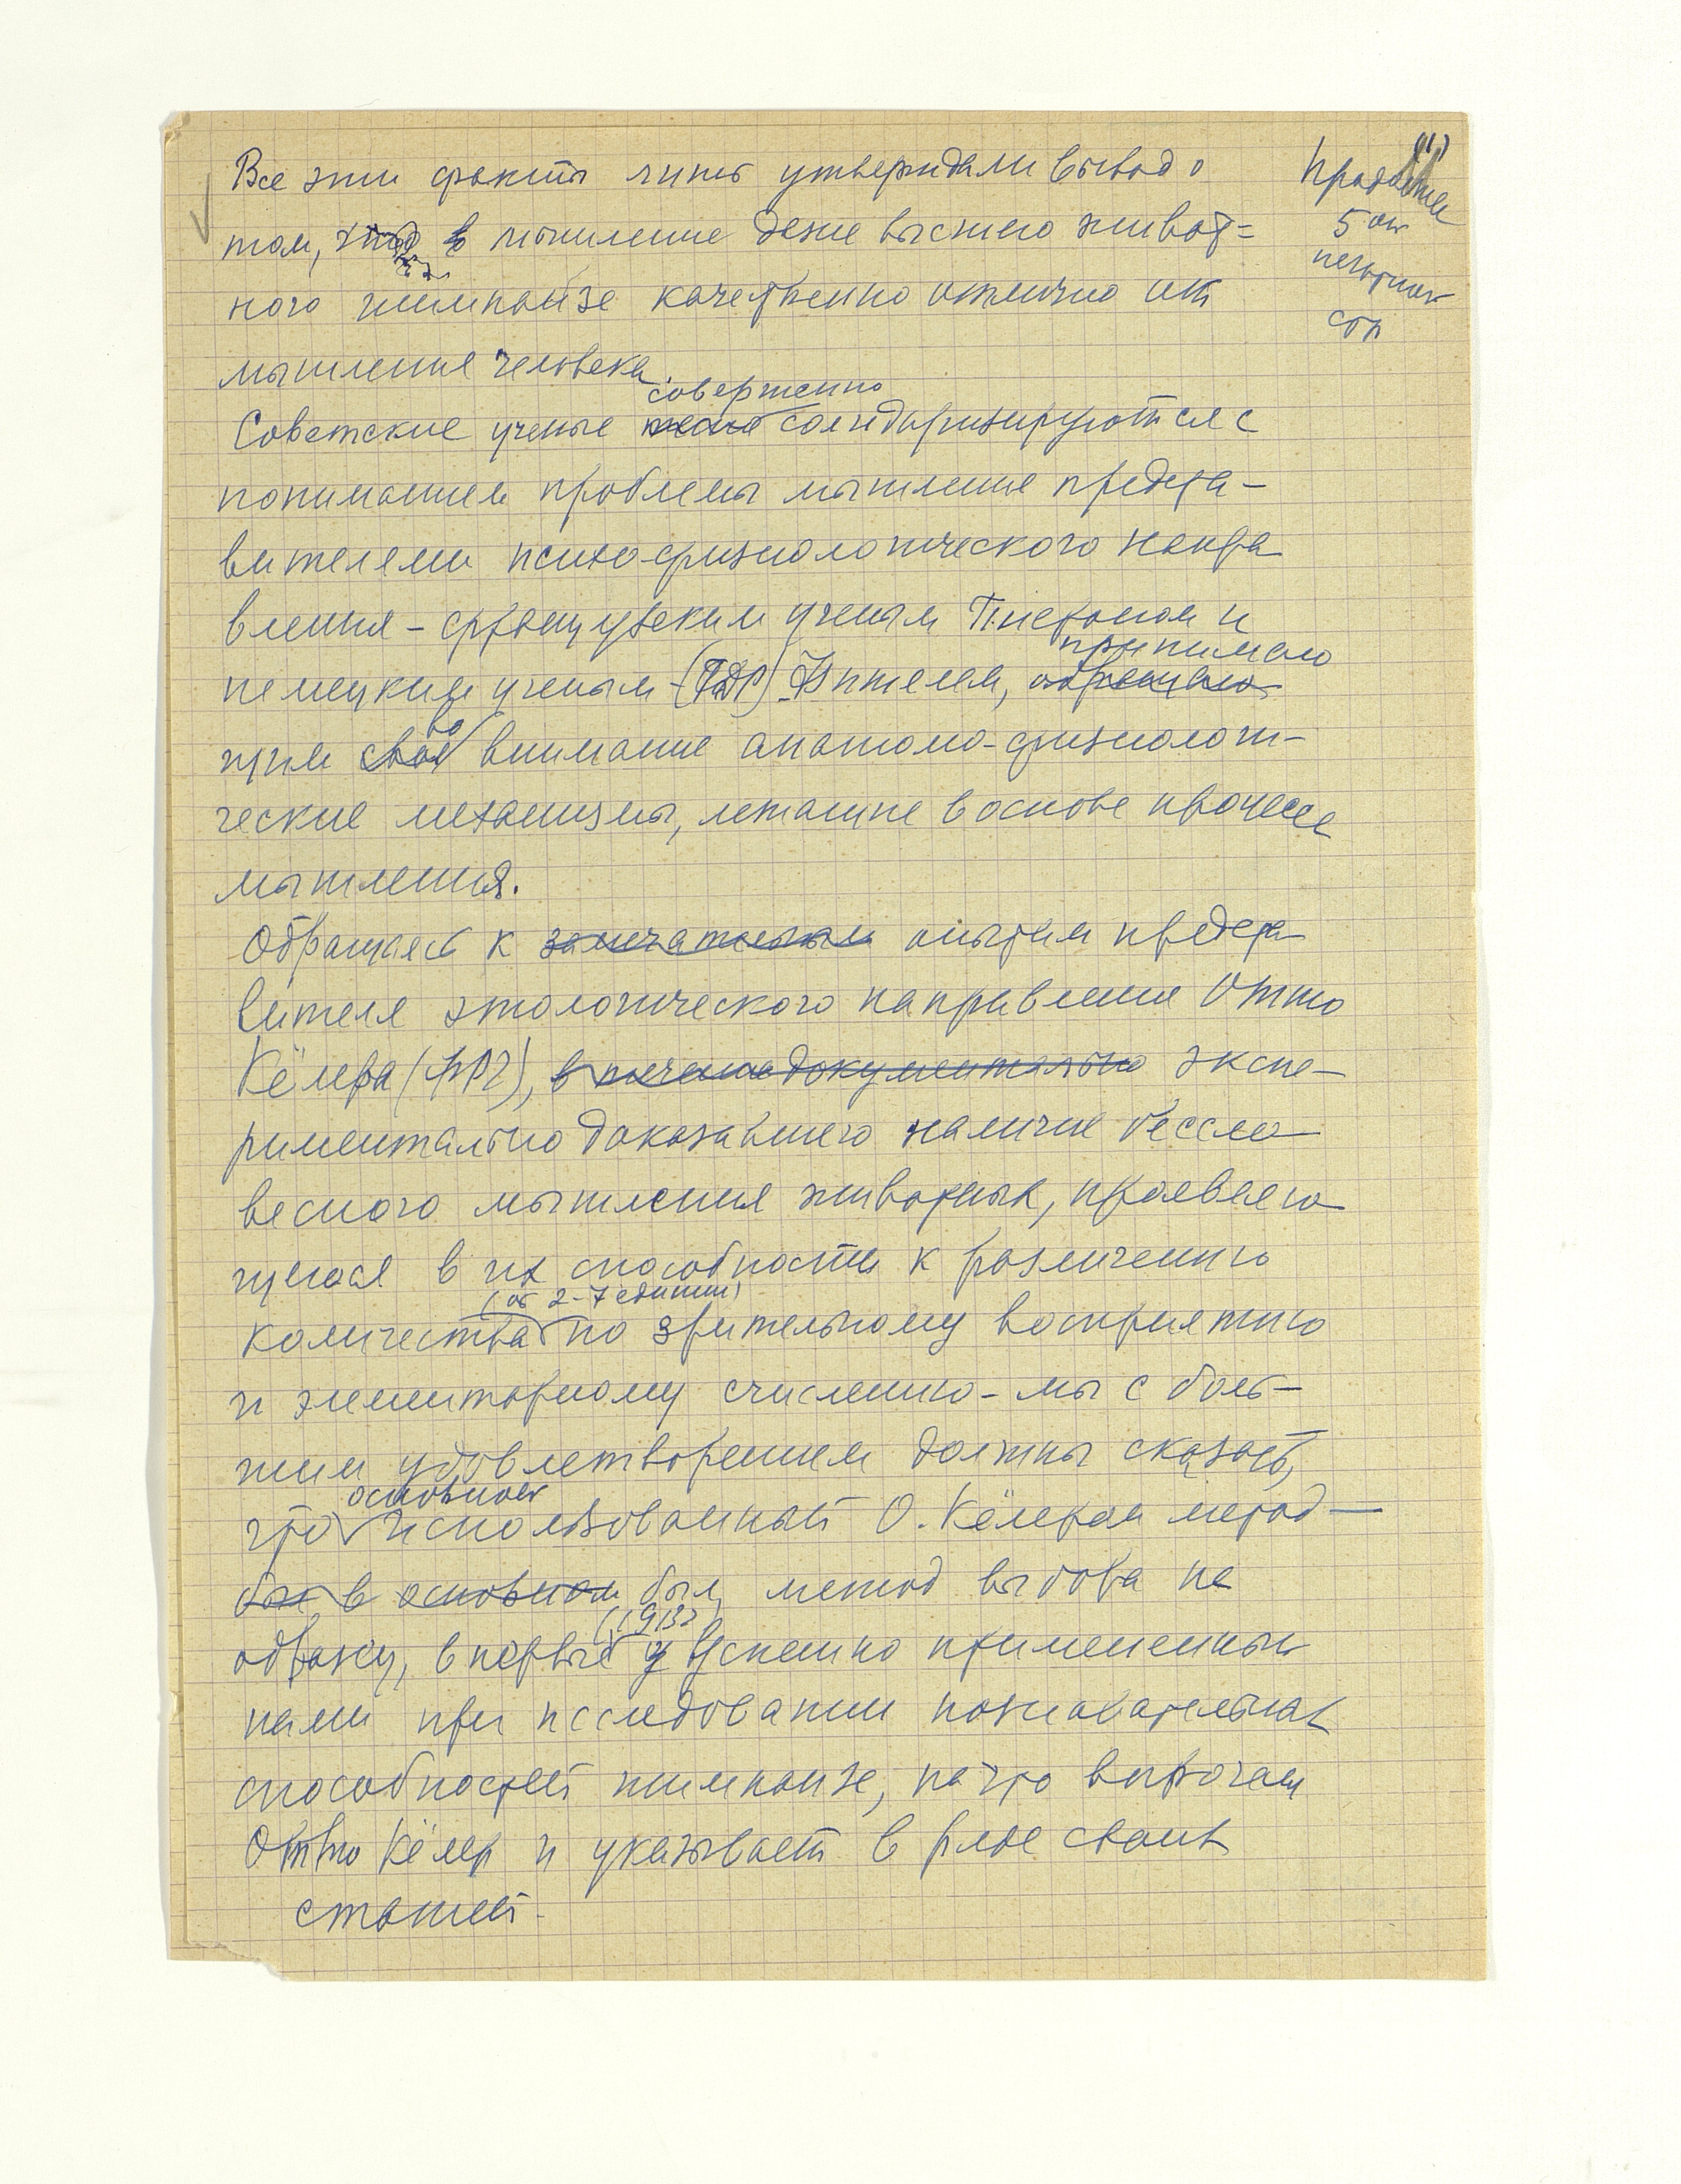 Все эти факты лишь утверждали вывод о
том, что мышление даже высшего живот=
ного шимпанзе качественно отлично от
мышления человека.
совершенно
Советские ученые солидаризируются с
пониманием проблемы мышления предста-
вителями психофизиологического напра
вления - французским ученым Пьероном и
принимаю
немецким ученым - (ГДР) , обращаю
во
щим свое внимание анатомо-физиологи-
ческие механизмы, лежащие в основе процесса
мышления.
Обращаясь к замечательным опытам предста
вителя этологического направления Отто
Кёлера (ФРГ), в документально экспе-
риментально доказавшего наличие бессло
весного мышления животных, проявляю
щегося в их способности к различению
(от 2-7 единиц)
количества по зрительному восприятию
и элементарному счислению - мы с боль-
шим удовлетворением должны сказать,
основной
что использованный О. Кёлером метод —
был в основном был метод выбора на
(1913)
образец, впервые успешно примененный
нами при исследовании познавательных
способностей шимпанзе, на что впрочем
Отто Кёлер и указывает в ряде своих
статей.
Продолжен
5 ой
печатной
стр